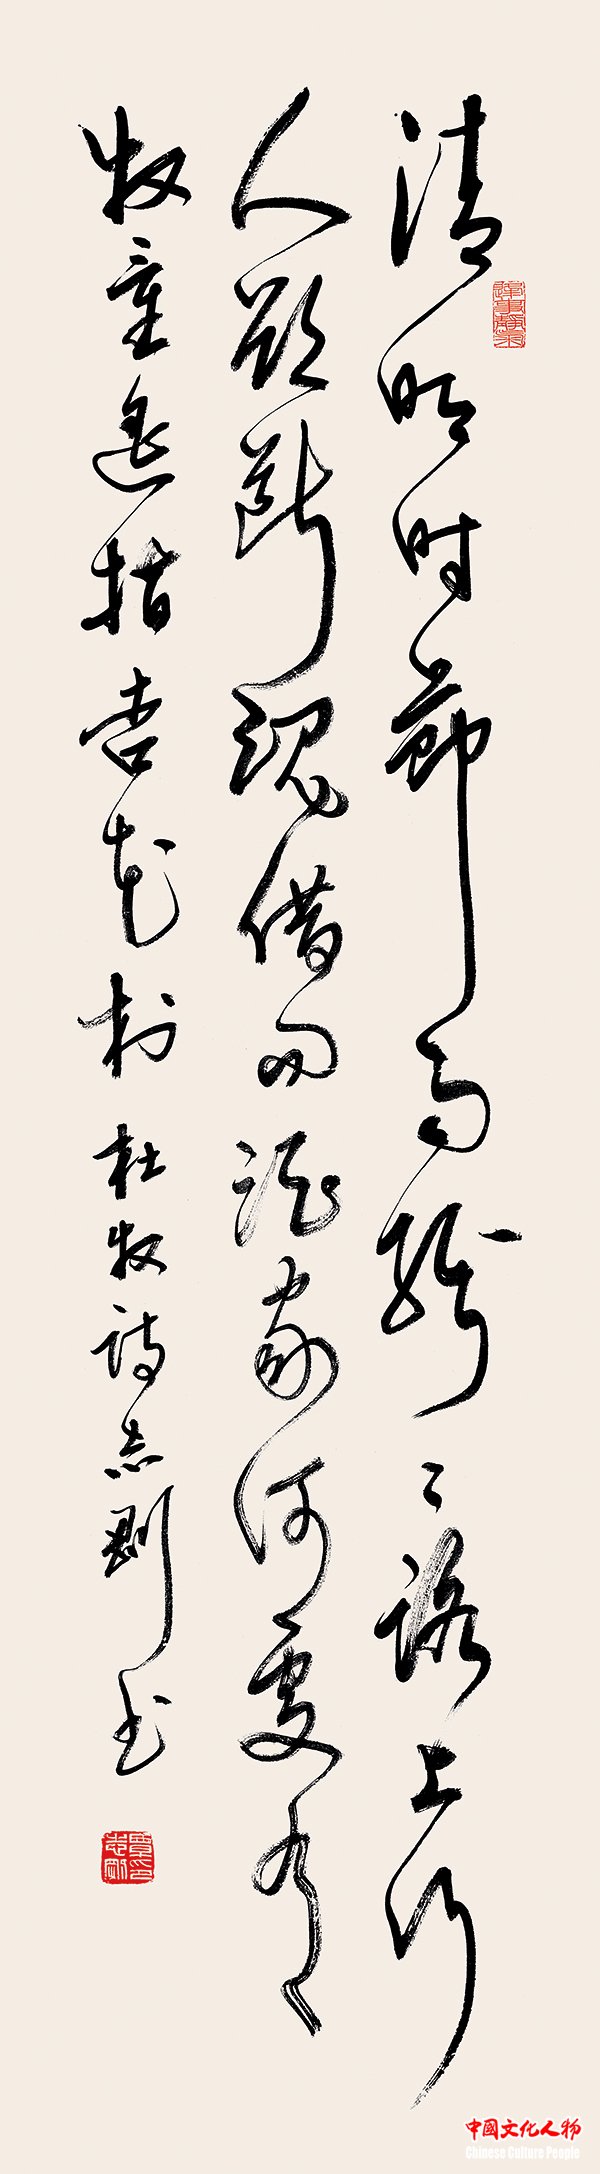 清明时節雨紛〻路上行
人欲斷魂借问酒家何處有
牧童遙指杏花村 杜牧詩志剛书
中國文化人物
Chinese Culture People